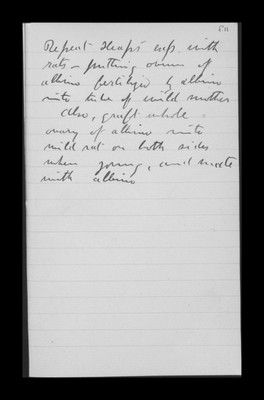 Repeat Heape's exps. with
rats - putting ovum of
albino fertilized by albino
into tube of wild mother
Also, graft whole
ovary of albino into
wild rat on both sides
when young, and mate
with albino